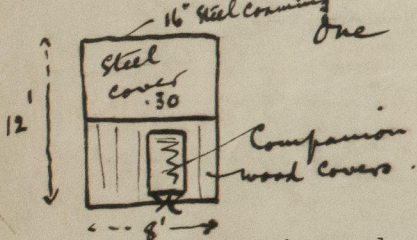 16" Steel Coaming
One
Steel
cover
.30
12'
Companion
wood covers.
8'